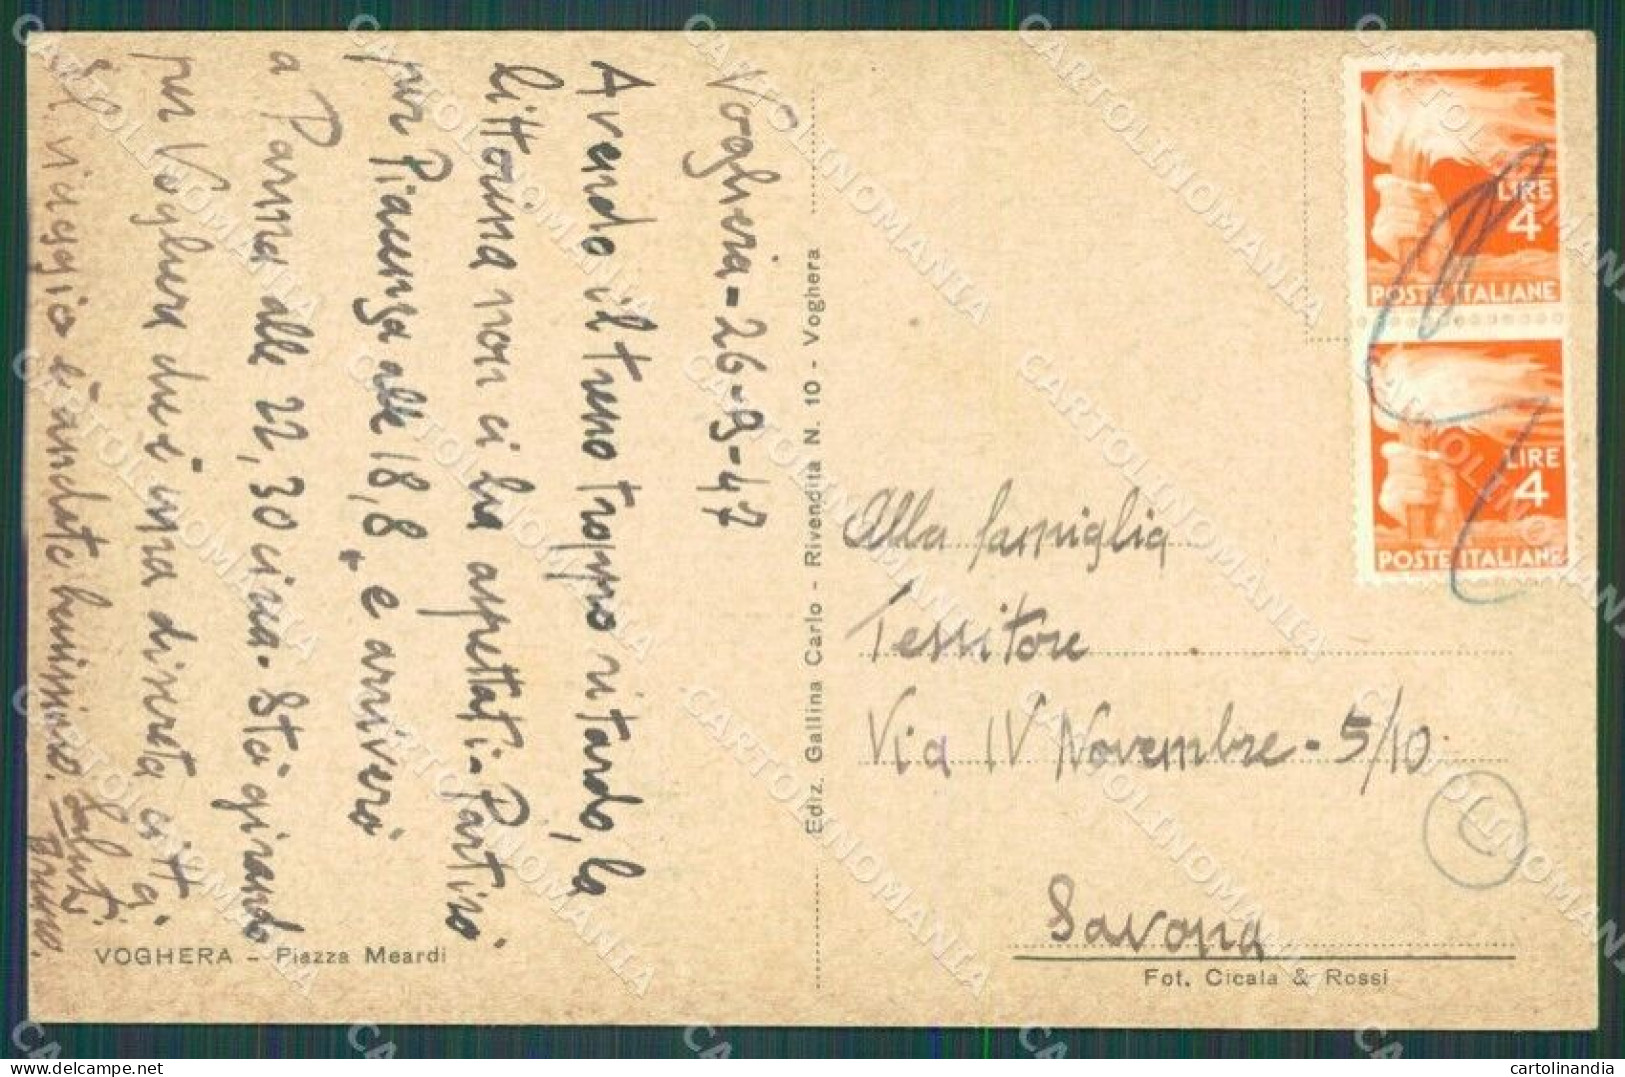 Voghera-26-9-47
Avendo il treno troppo ritardo, la
littorina non ci ha aspettati-Partirò
per Piacenza alle 18,8 e arriverò
a Parma alle 22,30 circa. Sto girando
per Voghera che è una discreta città.
Il viaggio è andato benissimo. Saluti
Bruno.
VOGHERA - Piazza Meardi
Ediz. Gallina Carlo - Rivendita N. 10 - Voghera
LIRE
4
POSTE ITALIANE
LIRE
4
POSTE ITALIANE
Alla famiglia
Tessitore
Via IV Novembre - 5/10
Savona
Fot. Cicala & Rossi
CARTOLINOMANIA
cartolinandia